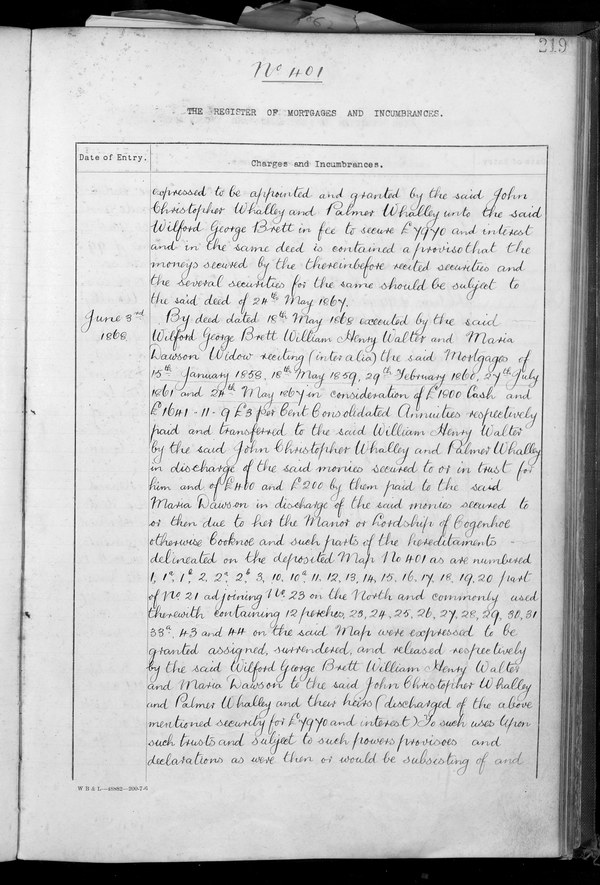 219
No 401
THE REGISTER OF MORTGAGES AND INCUMBRANCES.
Date of Entry.
Charges and Incumbrances.
expressed to be appointed and granted by the said John
Christopher Whalley and Palmer Whalley unto the said
Wilford George Brett in fee to secure £7970 and interest
and in the same deed is contained a proviso that the
moneys secured by the thereinbefore recited securities and
the several securities for the same should be subject to
the said deed of 24th May 1867.
June 3rd
1868
By deed dated 18th May 1868 executed by the said
Wilford George Brett William Henry Walter and Maria
Dawson Widow reciting (inter alia) the said Mortgages of
15th January 1858, 18th May 1859, 29th February 1860, 27th July
1861 and 24th May 1867 in consideration of £1800 Cash and
£1641-11-9 £3 per Cent Consolidated Annuities respectively
paid and transferred to the said William Henry Walter
by the said John Christopher Whalley and Palmer Whalley
in discharge of the said monies secured to or in trust for
him and of £400 and £200 by them paid to the said
Maria Dawson in discharge of the said monies secured to
or then due to her the Manor or Lordship of Cogenhoe
otherwise Cooknoe and such parts of the hereditaments
delineated on the deposited Map No 401 as are numbered
1, 1a, 1b, 2, 2a, 2b, 3, 10, 10a, 11, 12, 13, 14, 15, 16, 17, 18, 19, 20 part
of No. 21 adjoining No. 23 on the North and commonly used
therewith containing 12 perches, 23, 24, 25, 26, 27, 28, 29, 30, 31
33a, 43 and 44 on the said Map were expressed to be
granted assigned, surrendered, and released respectively
by the said Wilford George Brett William Henry Walter
and Maria Dawson to the said John Christopher Whalley
and Palmer Whalley and their heirs (discharged of the above
mentioned security for £7970 and interest) To such uses Upon
such trusts and subject to such powers provisoes and
declarations as were then or would be subsisting of and
W B & L—49882—200-7-6